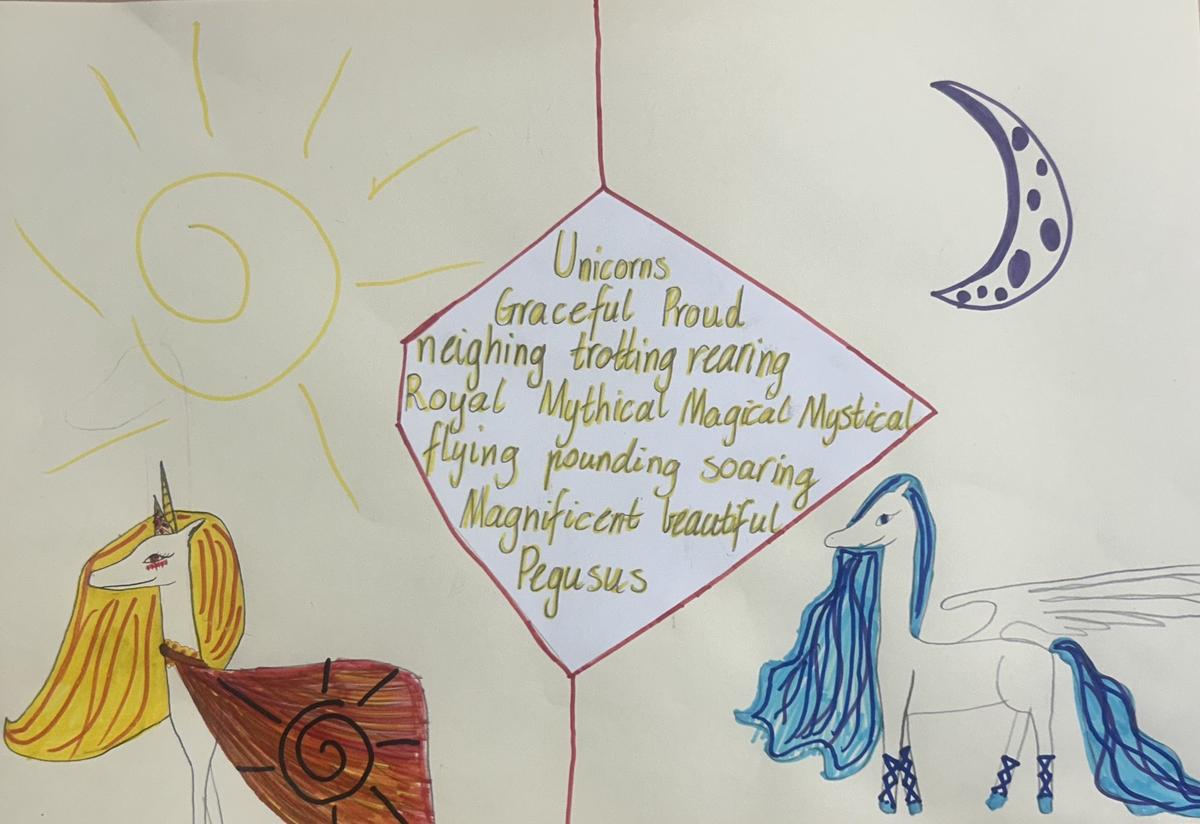 Unicorns
Graceful Proud
neighing trotting rearing
Royal Mythical Magical Mystical
flying pounding soaring
Magnificent beautiful
Pegusus